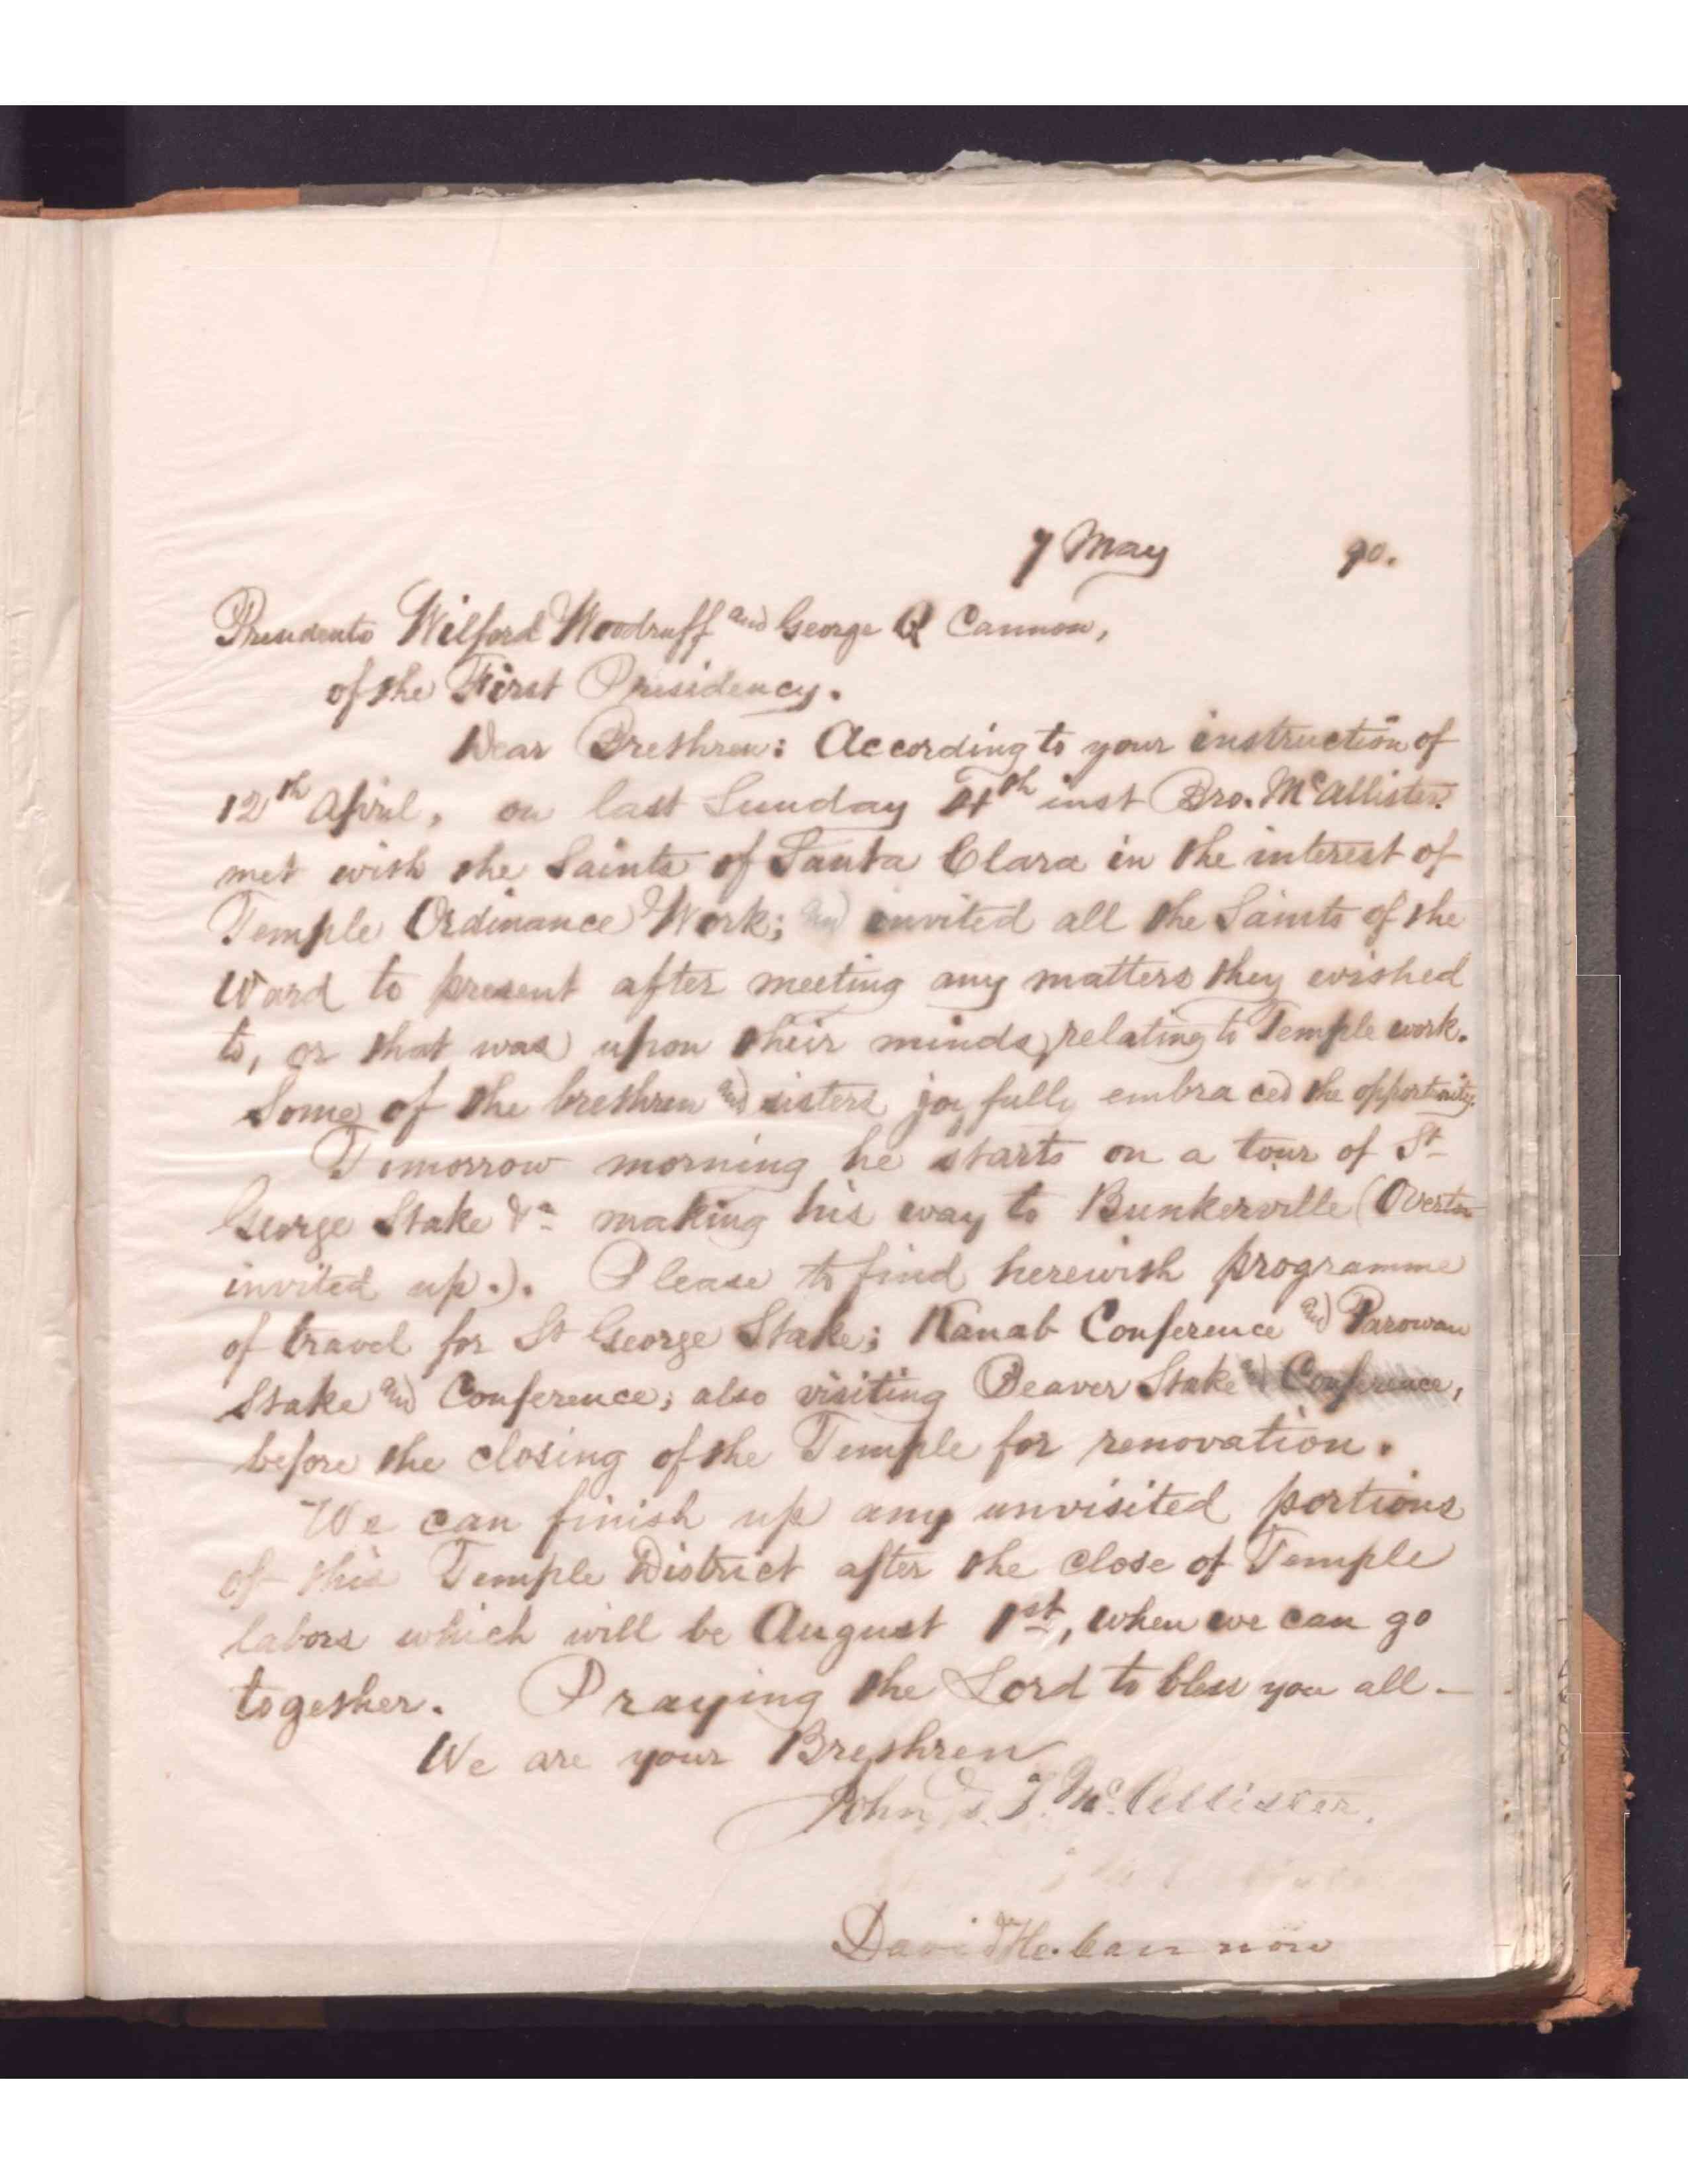 7 May 90.
Presidents Wilford Woodruff and George Q Cannon,
of the First Presidency.
Dear Brethren: According to your instruction of
12th April, on last Sunday 4th inst Bro. McAllister
met with the Saints of Santa Clara in the interest of
Temple Ordinance Work; and invited all the Saints of the
Ward to present after meeting any matters they wished
to, or that was upon their minds, relating to Temple work.
Some of the brethren and sisters joyfully embraced the opportunity.
Tomorrow morning he starts on a tour of St
George Stake &a making his way to Bunkerville (Overton
invited up.). Please to find herewith programme
of travel for St George Stake; Kanab Conference and Parowan
Stake and Conference; also visiting Beaver Stake and Conference,
before the closing of the Temple for renovation.
We can finish up any unvisited portions
of this Temple District after the close of Temple
labors which will be August 1st, when we can go
together. Praying the Lord to bless you all.—
We are your Brethren
John D. T. McAllister.
David H. Cannon